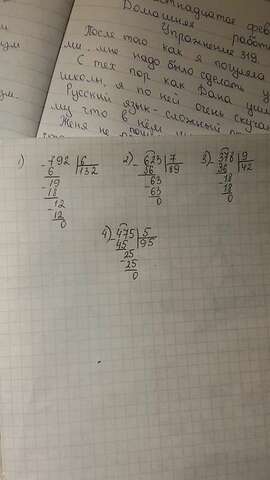 надцатое фев
Домашняя работа
Упражнение 319.
После того как я погуляла
ми, мне надо было сделать у
С тех пор как Дана уши
школы, я по ней очень скуча
Русский язык - сложный пр
му что в нём
Женя не
1) -792 | 6
6 | 132
-19
18
-12
12
0
2) -623 | 7
56 | 89
-63
63
0
3) -378 | 9
36 | 42
-18
18
0
4) -475 | 5
45 | 95
-25
25
0